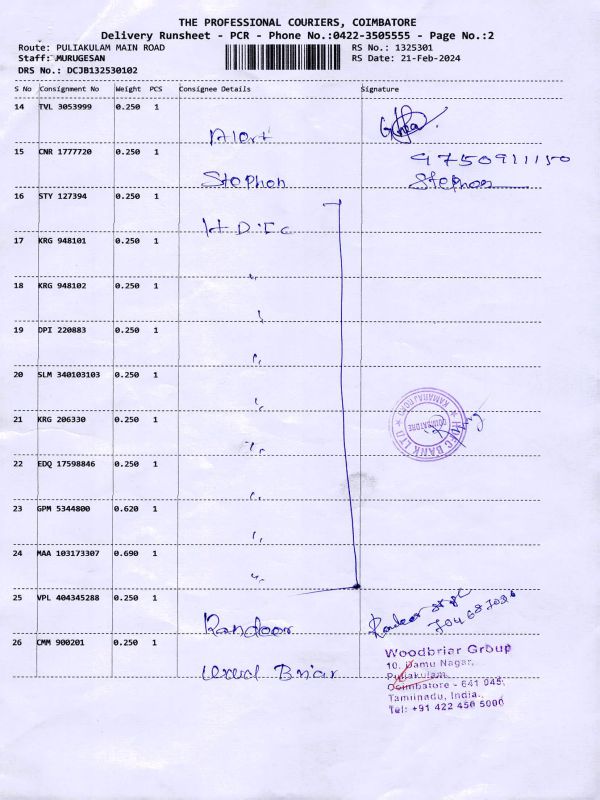 THE PROFESSIONAL COURIERS, COIMBATORE
Delivery Runsheet - PCR - Phone No.:0422-3505555 - Page No.:2
Route: PULIAKULAM MAIN ROAD RS No.: 1325301
Staff: MURUGESAN RS Date: 21-Feb-2024
DRS No.: DCJB132530102
S No Consignment No Weight PCS Consignee Details Signature
14 TVL 3053999 0.250 1
Alert
15 CNR 1777720 0.250 1 9750911150
Stephen Stephen
16 STY 127394 0.250 1
H.D.F.C
17 KRG 948101 0.250 1
"
18 KRG 948102 0.250 1
"
19 DPI 220883 0.250 1
"
20 SLM 340103103 0.250 1
"
21 KRG 206330 0.250 1
"
HDFC BANK LTD
KAMARAJ ROAD
COIMBATORE
22 EDQ 17598846 0.250 1
"
23 GPM 5344800 0.620 1
"
24 MAA 103173307 0.690 1
"
25 VPL 404345288 0.250 1
Randoor
26 CMM 900201 0.250 1
Wood Briar
Woodbriar Group
10, Damu Nagar,
Puliakulam,
Coimbatore - 641 045,
Tamilnadu, India.
Tel: +91 422 450 5000